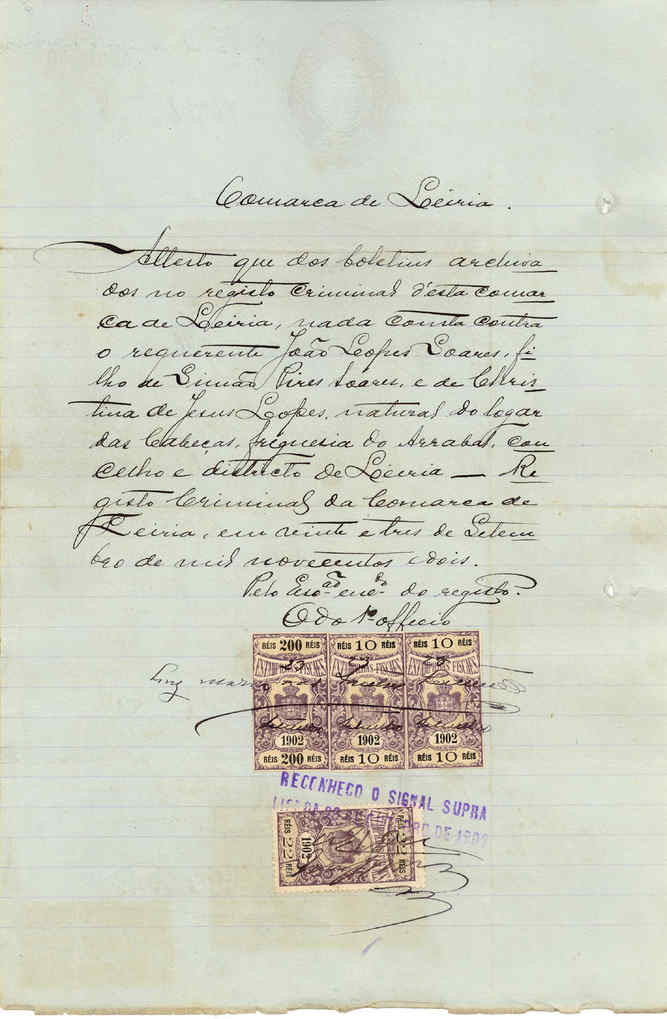 Comarca de Leiria.
Attesto que dos boletins archiva
dos no registo criminal d'esta comar
ca de Leiria, nada consta contra
o requerente João Lopes Soares, fi
lho de Simão Pires Soares, e de Chris
tina de Jesus Lopes, natural do logar
das Cabeças, freguesia do Arrabal, con
celho e districto de Leiria — Re
gisto Criminal da Comarca de
Leiria, em vinte e tres de Setem
bro de mil novecentos e dois.
Pelo Escão encdo do registo.
O do 1º officio
RÉIS 200 RÉIS RÉIS 10 RÉIS RÉIS 10 RÉIS
23 23 23
Luiz Maria
1902 1902 1902
RÉIS 200 RÉIS RÉIS 10 RÉIS RÉIS 10 RÉIS
RECONHEÇO O SIGNAL SUPRA
LISBOA DE 1902
RÉIS 1902 RÉIS